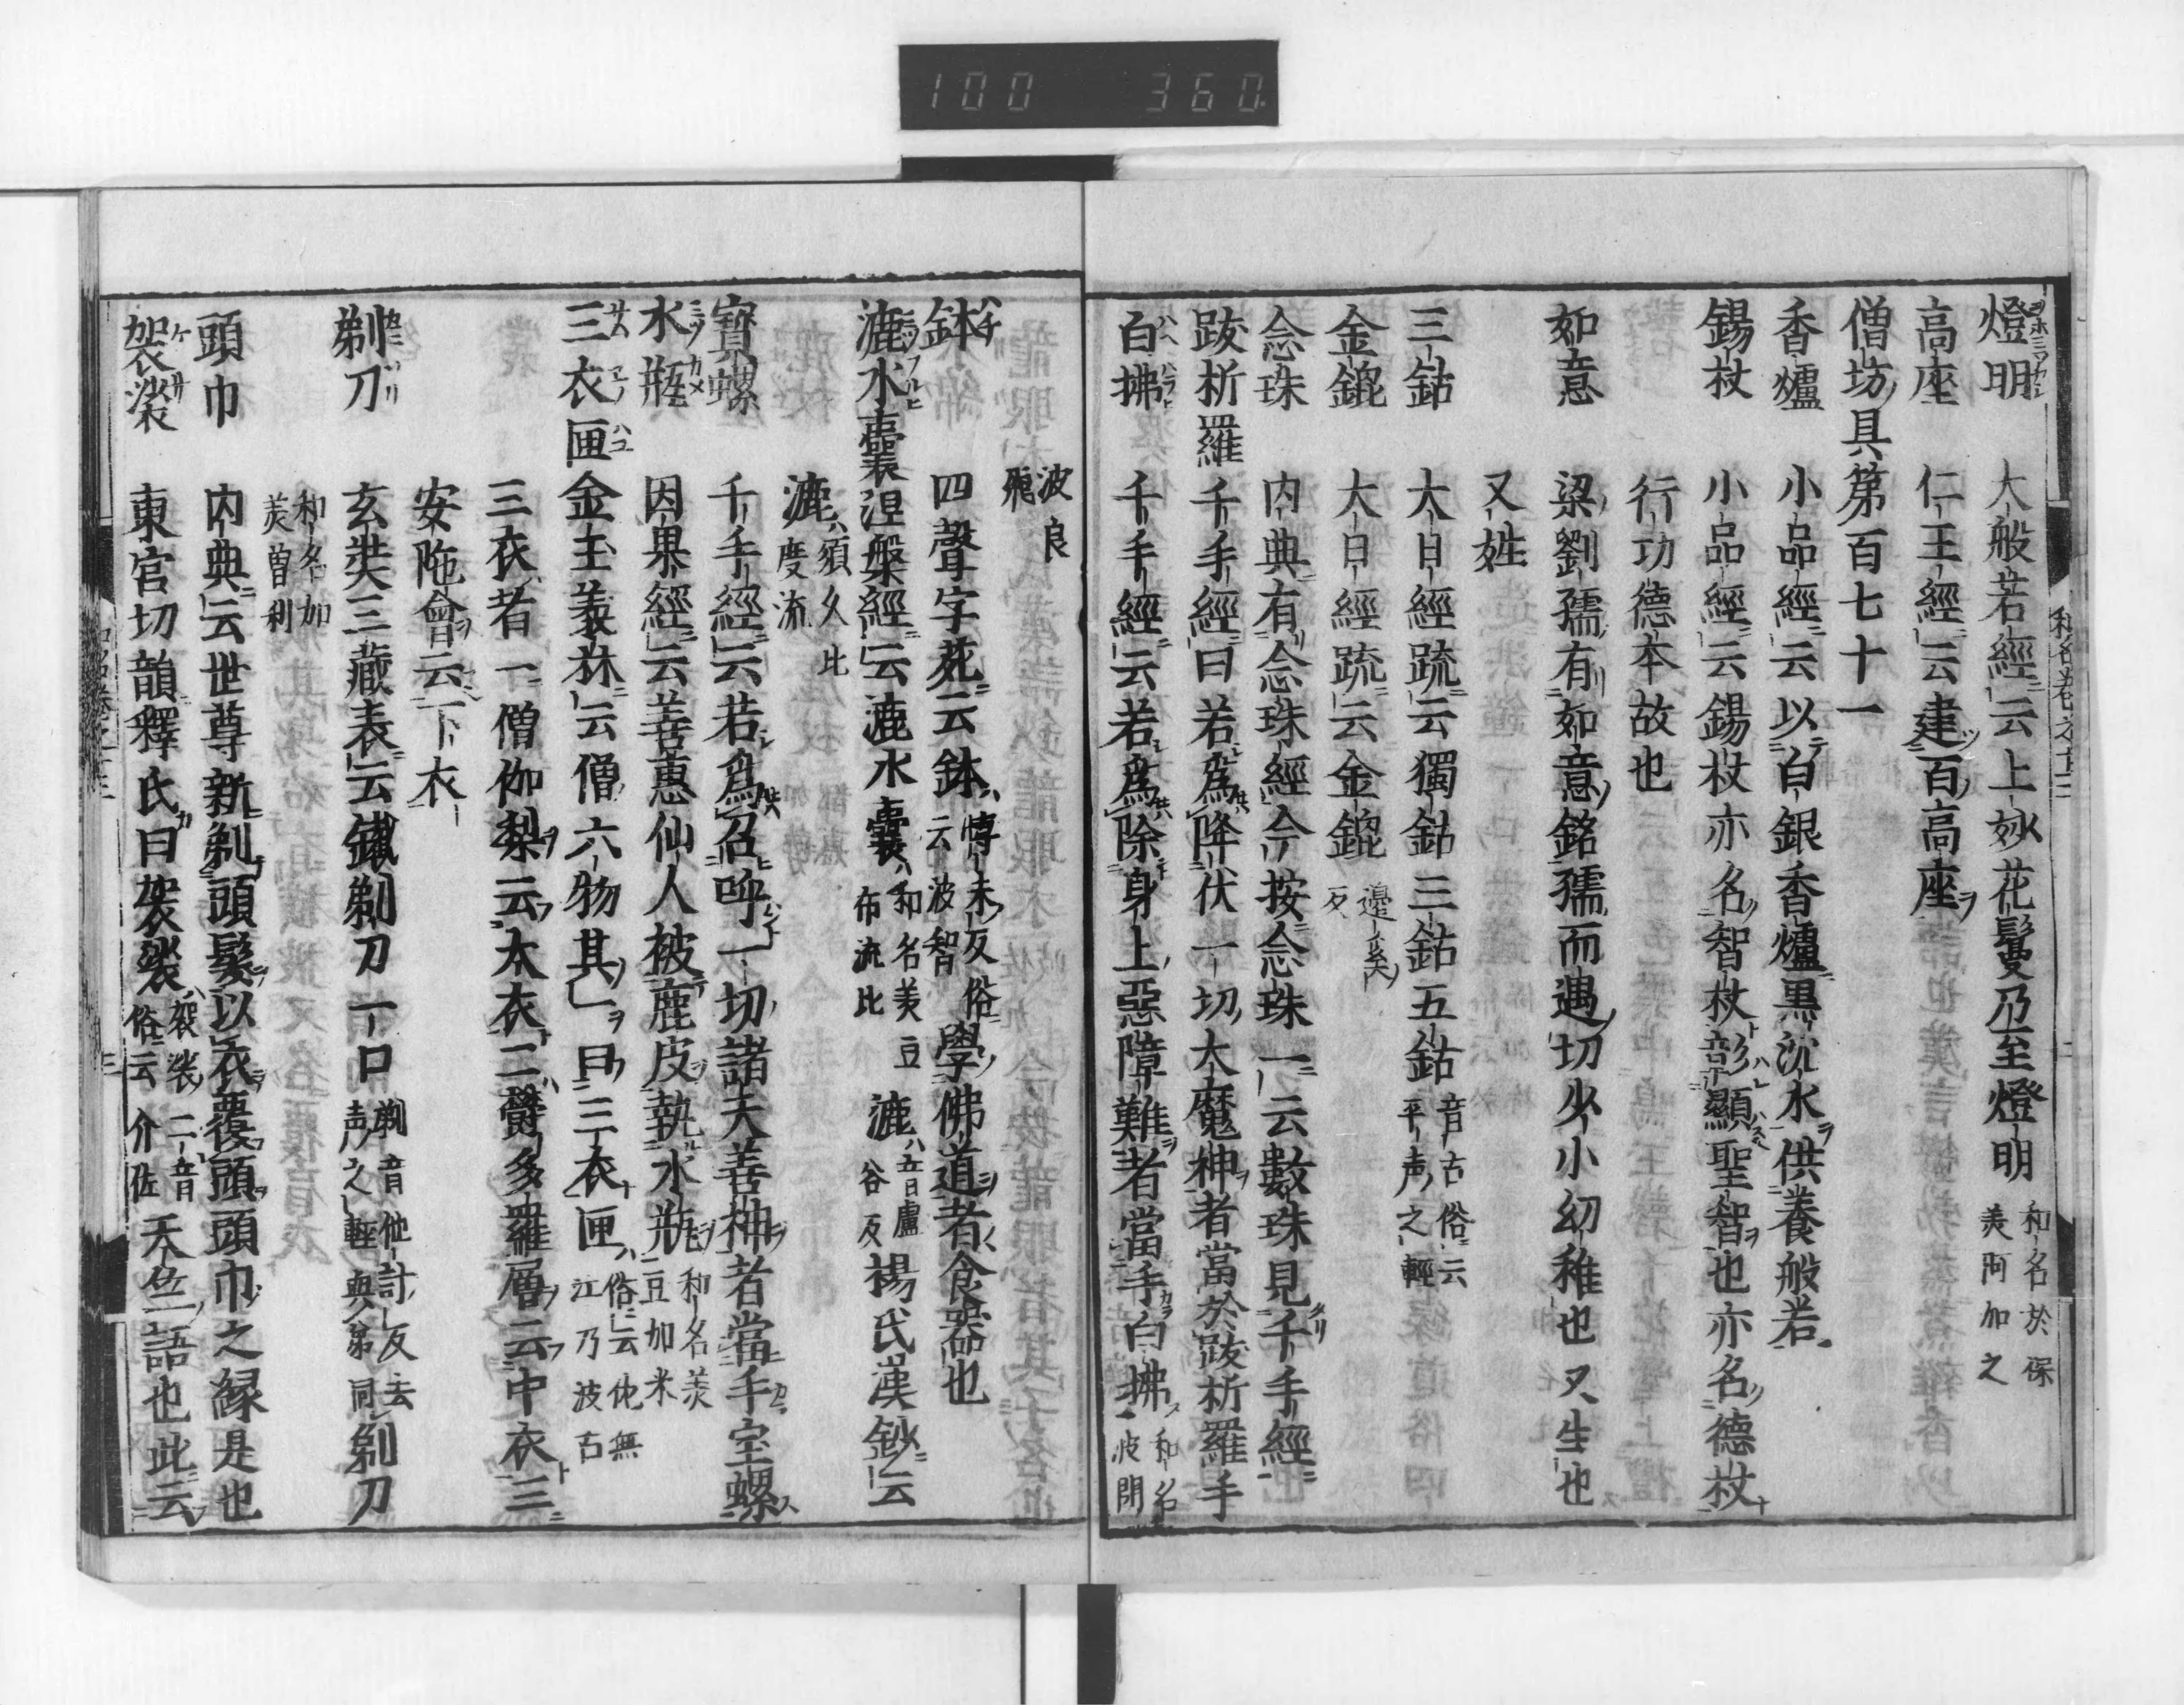 100 360
燈明 大般若經云上妙花鬘乃至燈明 和名於保美阿加之
高座 仁王經云建百高座
僧坊具第百七十一
香爐 小品經云以白銀香爐黒沉水供養般若
錫杖 小品經云錫杖亦名智杖彰顯聖智也亦名德杖
行功德本故也
如意 梁劉孺有如意銘孺而遇切少小幼稚也又生也
又姓
三鈷 大日經䟽云獨鈷三鈷五鈷 音古俗云平声之輕
金錍 大日經䟽云金錍 邊奚反
念珠 内典有念珠經今按念珠一云數珠見千手經
跋析羅 千手經曰若爲降伏一切大魔神者當於跋析羅手
白拂 千手經云若爲除身上惡障難者當手白拂 和名波閇
波良飛
鉢 四聲字苑云鉢 博末反俗云波智 學佛道者食器也
漉水囊 涅槃經云漉水囊 和名美豆布流比 漉 音盧谷反 楊氏漢鈔云
漉 須久比度流
寶螺 千手經云若爲召呼一切諸天善神者當手宝螺
水瓶 因果經云善惠仙人被鹿皮執水瓶 和名美豆加米
三衣匣 金玉義林云僧六物其一曰三衣匣 俗云佐無江乃波古
三衣者一僧伽梨云大衣二欝多羅層云中衣三
安陁會云下衣
剃刀 玄奘三藏表云鐵剃刀一口 剃音他計反去声之輕與第同 剃刀
和名加美曽利
頭巾 内典云世尊新剃頭髪以衣覆頭頭巾之縁是也
袈裟 東宮切韻釋氏曰袈裟 袈裟二音俗云介佐 天竺語也此云